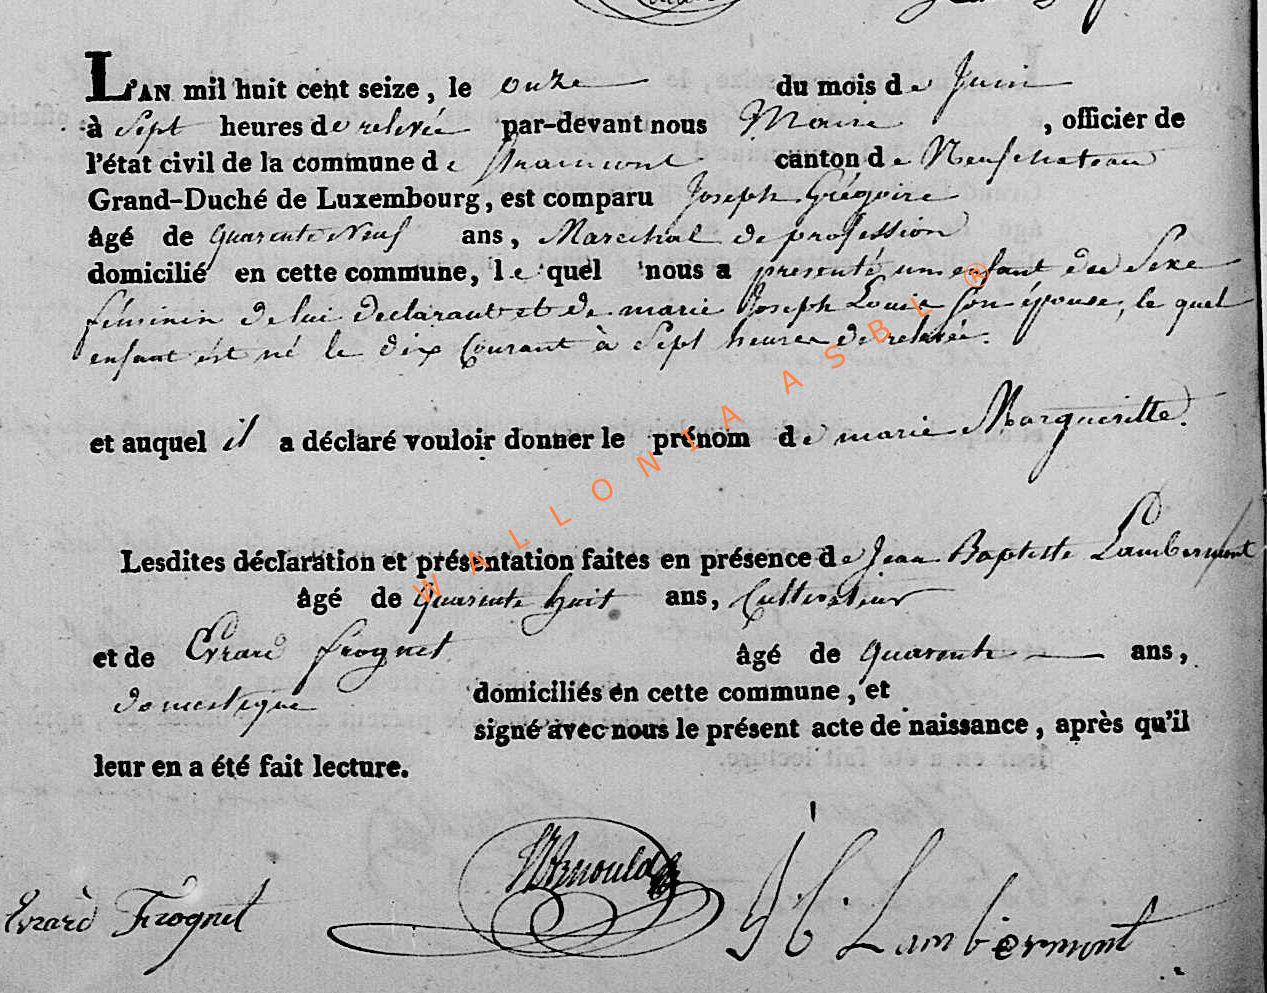 L'AN mil huit cent seize, le onze du mois de Juin
à Sept heures de relevée par-devant nous Maire, officier de
l'état civil de la commune de Straimont canton de Neufchateau
Grand-Duché de Luxembourg, est comparu Joseph Grégoire
âgé de quarante Neuf ans, Marechal de profession
domicilié en cette commune, le quel nous a presenté un enfant du Sexe
féminin de lui declarant et de marie Joseph Louis son épouse, le quel
enfant ést né le dix Courant à Sept heures de relevée.
et auquel il a déclaré vouloir donner le prénom de marie Margueritte.
Lesdites déclaration et présentation faites en présence de Jean Baptiste Lambermont
âgé de quarante huit ans, Cultivateur
et de Evrard frognet âgé de quarante ans,
domestique domiciliés en cette commune, et
signé avec nous le présent acte de naissance, après qu'il
leur en a été fait lecture.
Evrard Frognet Arnould J B Lambermont
WALLONIA ASBL ®